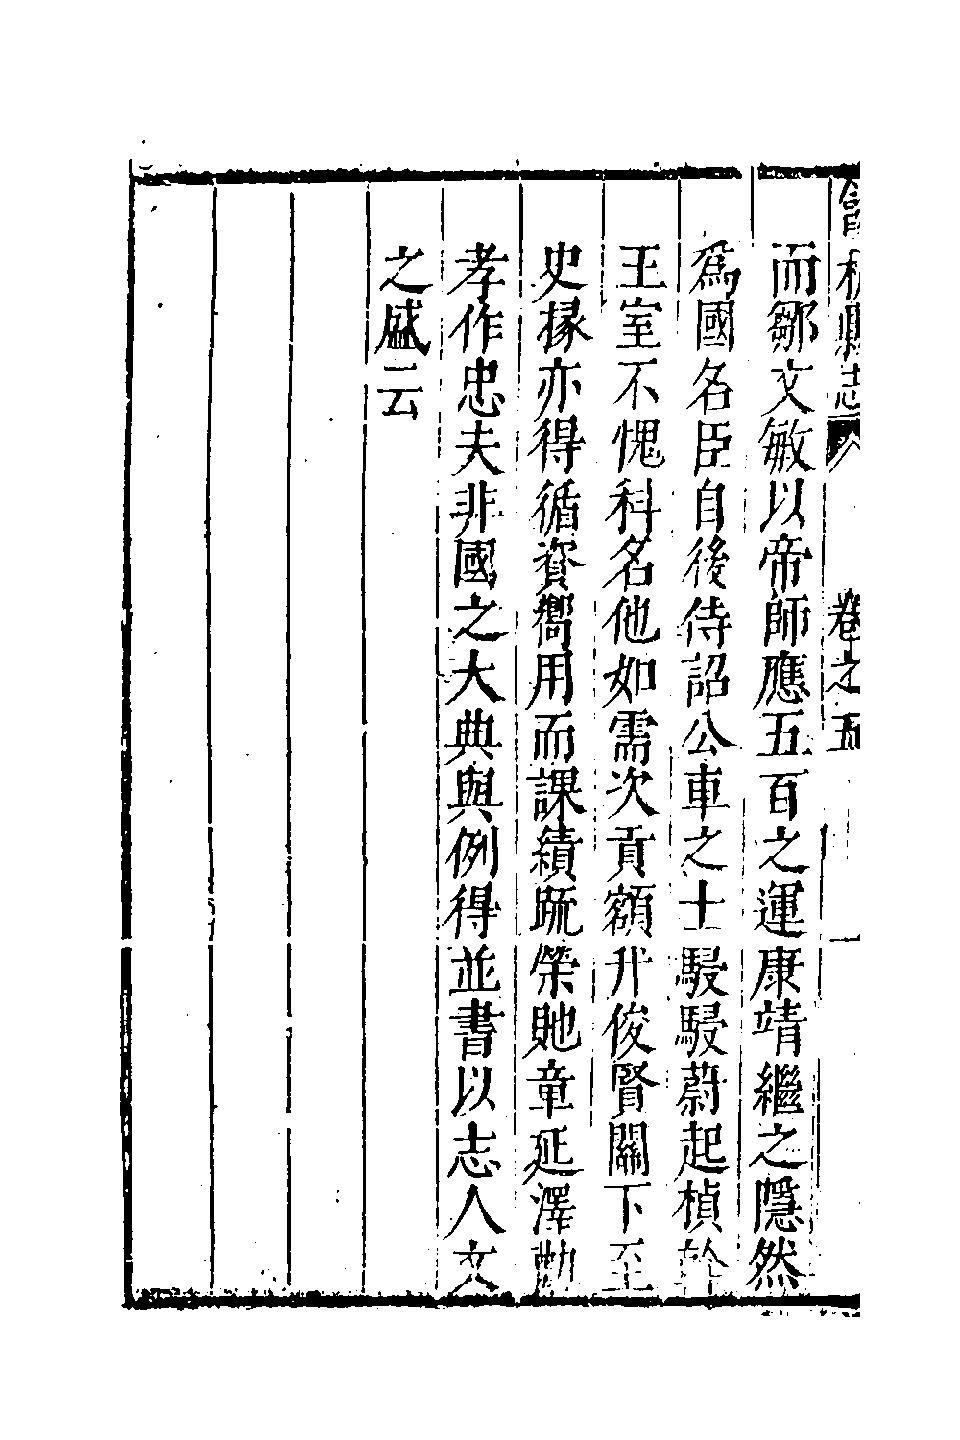 縣志 卷之五 一
而鄒文敏以帝師應五百之運康靖繼之隱然
爲國名臣自後待詔公車之士駸駸蔚起楨幹
王室不愧科名他如需次貢額升俊賢關下至
史掾亦得循資嚮用而課績䟽榮貤章延澤
孝作忠夫非國之大典與例得並書以志人文
之盛云